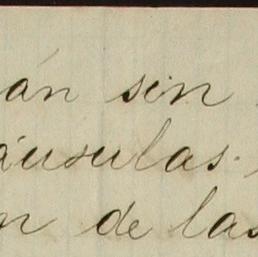 án sin
áusulas.
n de las